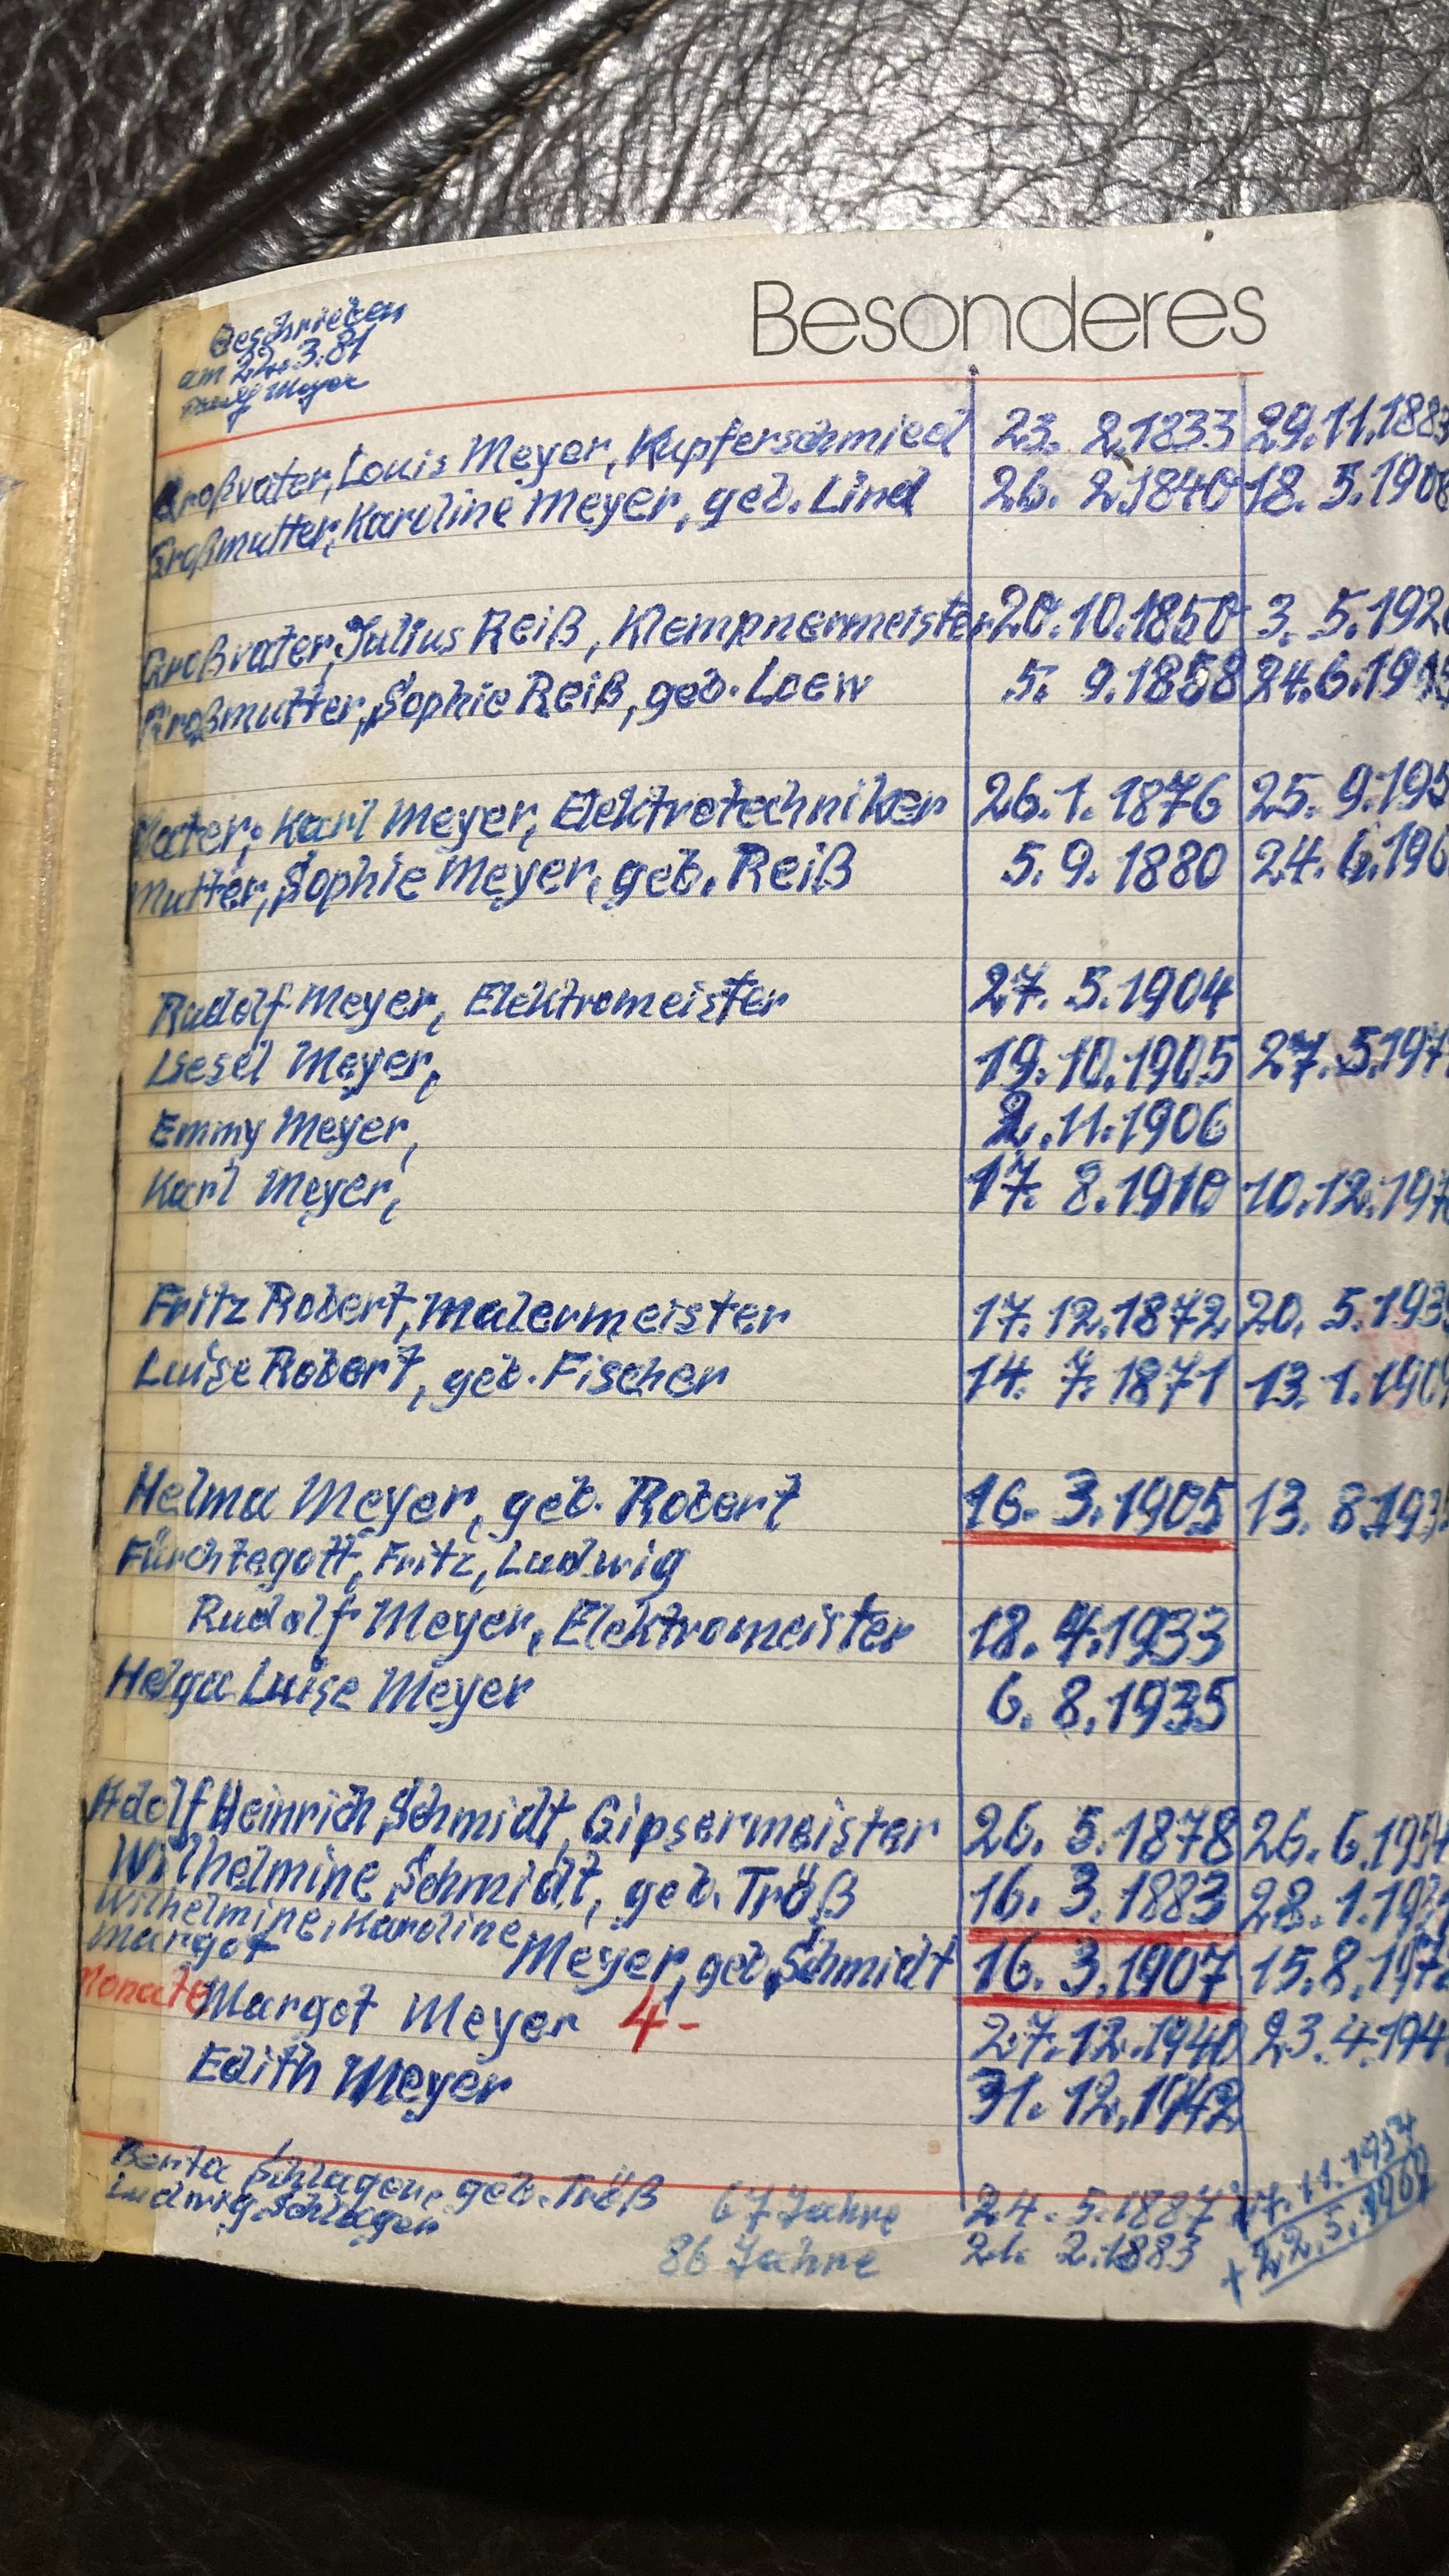 Besonderes
Geschrieben
am 22.3.81
Meyer
Großvater, Louis Meyer, Kupferschmied 23. 2.1833 29.11.188
Großmutter, Karoline Meyer, geb. Lind 26. 2.1840 18. 5.190
Großvater, Julius Reiß, Klempnermeister 20.10.1850 3. 5.192
Großmutter, Sophie Reiß, geb. Loew 5. 9.1858 24.6.19
Vater, Karl Meyer, Elektrotechniker 26.1.1876 25. 9.195
Mutter, Sophie Meyer, geb. Reiß 5.9.1880 24.6.196
Rudolf Meyer, Elektromeister 27. 5.1904
Liesel Meyer, 19.10.1905 27.5.197
Emmy Meyer, 2.11.1906
Karl Meyer, 17. 8.1910 10.12.197
Fritz Robert, Malermeister 17.12.1872 20. 5.193
Luise Robert, geb. Fischer 14. 7.1871 13.1.19
Helma Meyer, geb. Robert 16. 3.1905 13. 8.193
Fürchtegott, Fritz, Ludwig
Rudolf Meyer, Elektromeister 18.4.1933
Helga Luise Meyer 6. 8.1935
Adolf Heinrich Schmidt, Gipsermeister 26. 5.1878 26.6.195
Wilhelmine Schmidt, geb. Tröß 16. 3.1883 28.1.19
Wilhelmine, Karoline
Margot Meyer, geb. Schmidt 16. 3.1907 15.8.197
Monate Margot Meyer 4- 27.12.1940 23.4.194
Edith Meyer 31.12.1942
Berta Schlagen, geb. Tröß 67 Jahre 24. 5.1887 11.1954
Ludwig Schlagen 86 Jahre 21. 2.1883 + 22.5.19